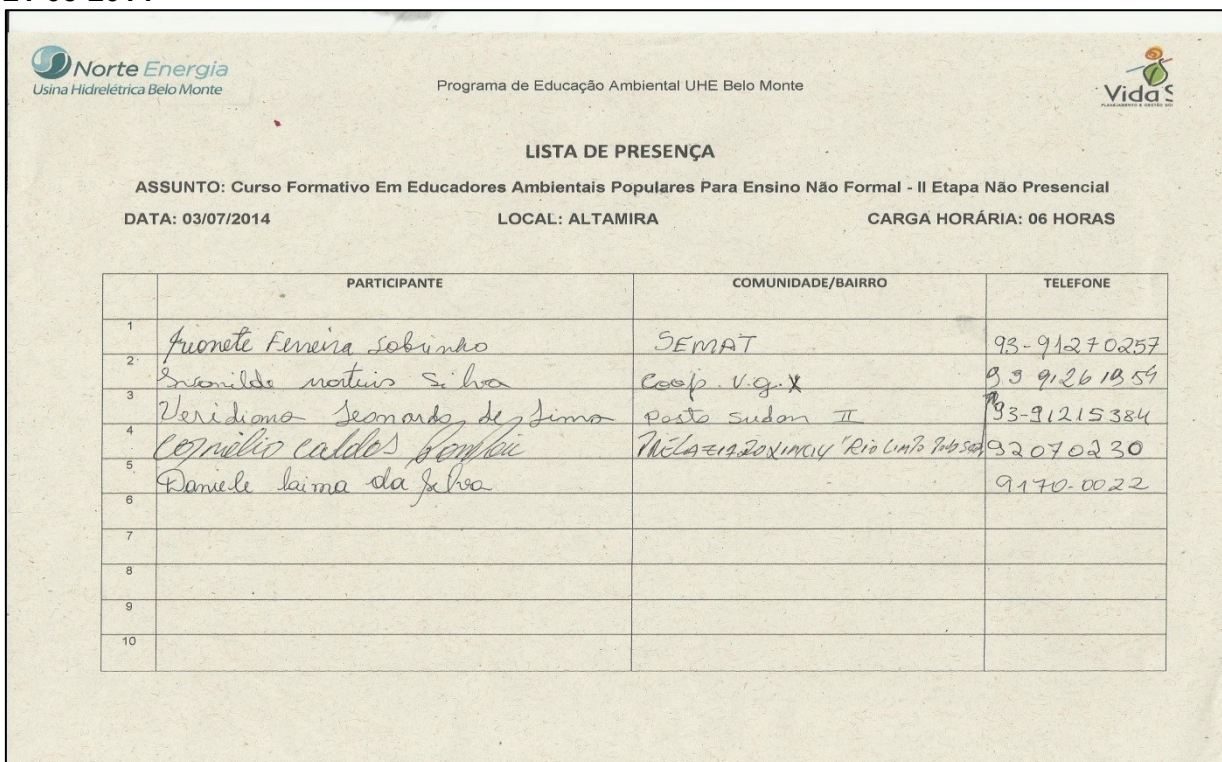 Norte Energia
Usina Hidrelétrica Belo Monte
Programa de Educação Ambiental UHE Belo Monte
Vida S
LISTA DE PRESENÇA
ASSUNTO: Curso Formativo Em Educadores Ambientais Populares Para Ensino Não Formal - II Etapa Não Presencial
DATA: 03/07/2014 LOCAL: ALTAMIRA CARGA HORÁRIA: 06 HORAS
PARTICIPANTE COMUNIDADE/BAIRRO TELEFONE
1 Ferreira Sobrinho SEMAT 93-91270257
2 Silva Coop. V.g.X
3 Veridiana Leonardo de Lima Posto Sudam II 93-91215384
4 Cornélio 92070230
5 Daniele da Silva 9170-0022
6
7
8
9
10